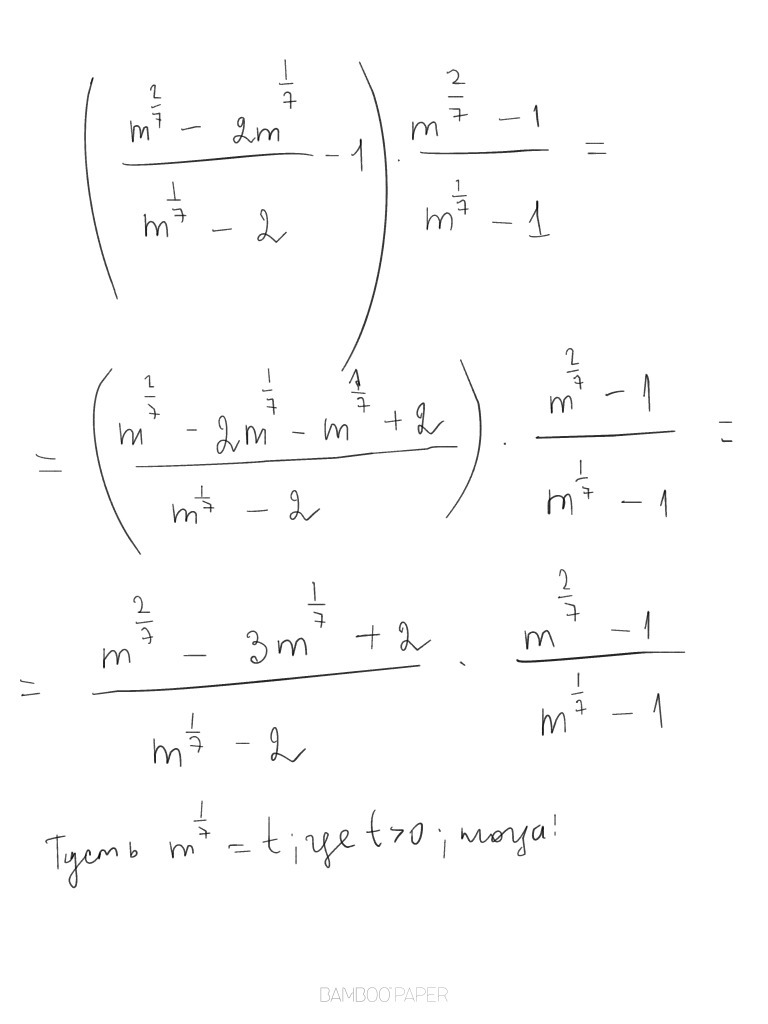 (m^(2/7) - 2m^(1/7) / m^(1/7) - 2 - 1) · m^(2/7) - 1 / m^(1/7) - 1 =
= (m^(2/7) - 2m^(1/7) - m^(1/7) + 2 / m^(1/7) - 2) · m^(2/7) - 1 / m^(1/7) - 1 =
= m^(2/7) - 3m^(1/7) + 2 / m^(1/7) - 2 · m^(2/7) - 1 / m^(1/7) - 1
Пусть m^(1/7) = t; где t>0; тогда:
BAMBOO PAPER